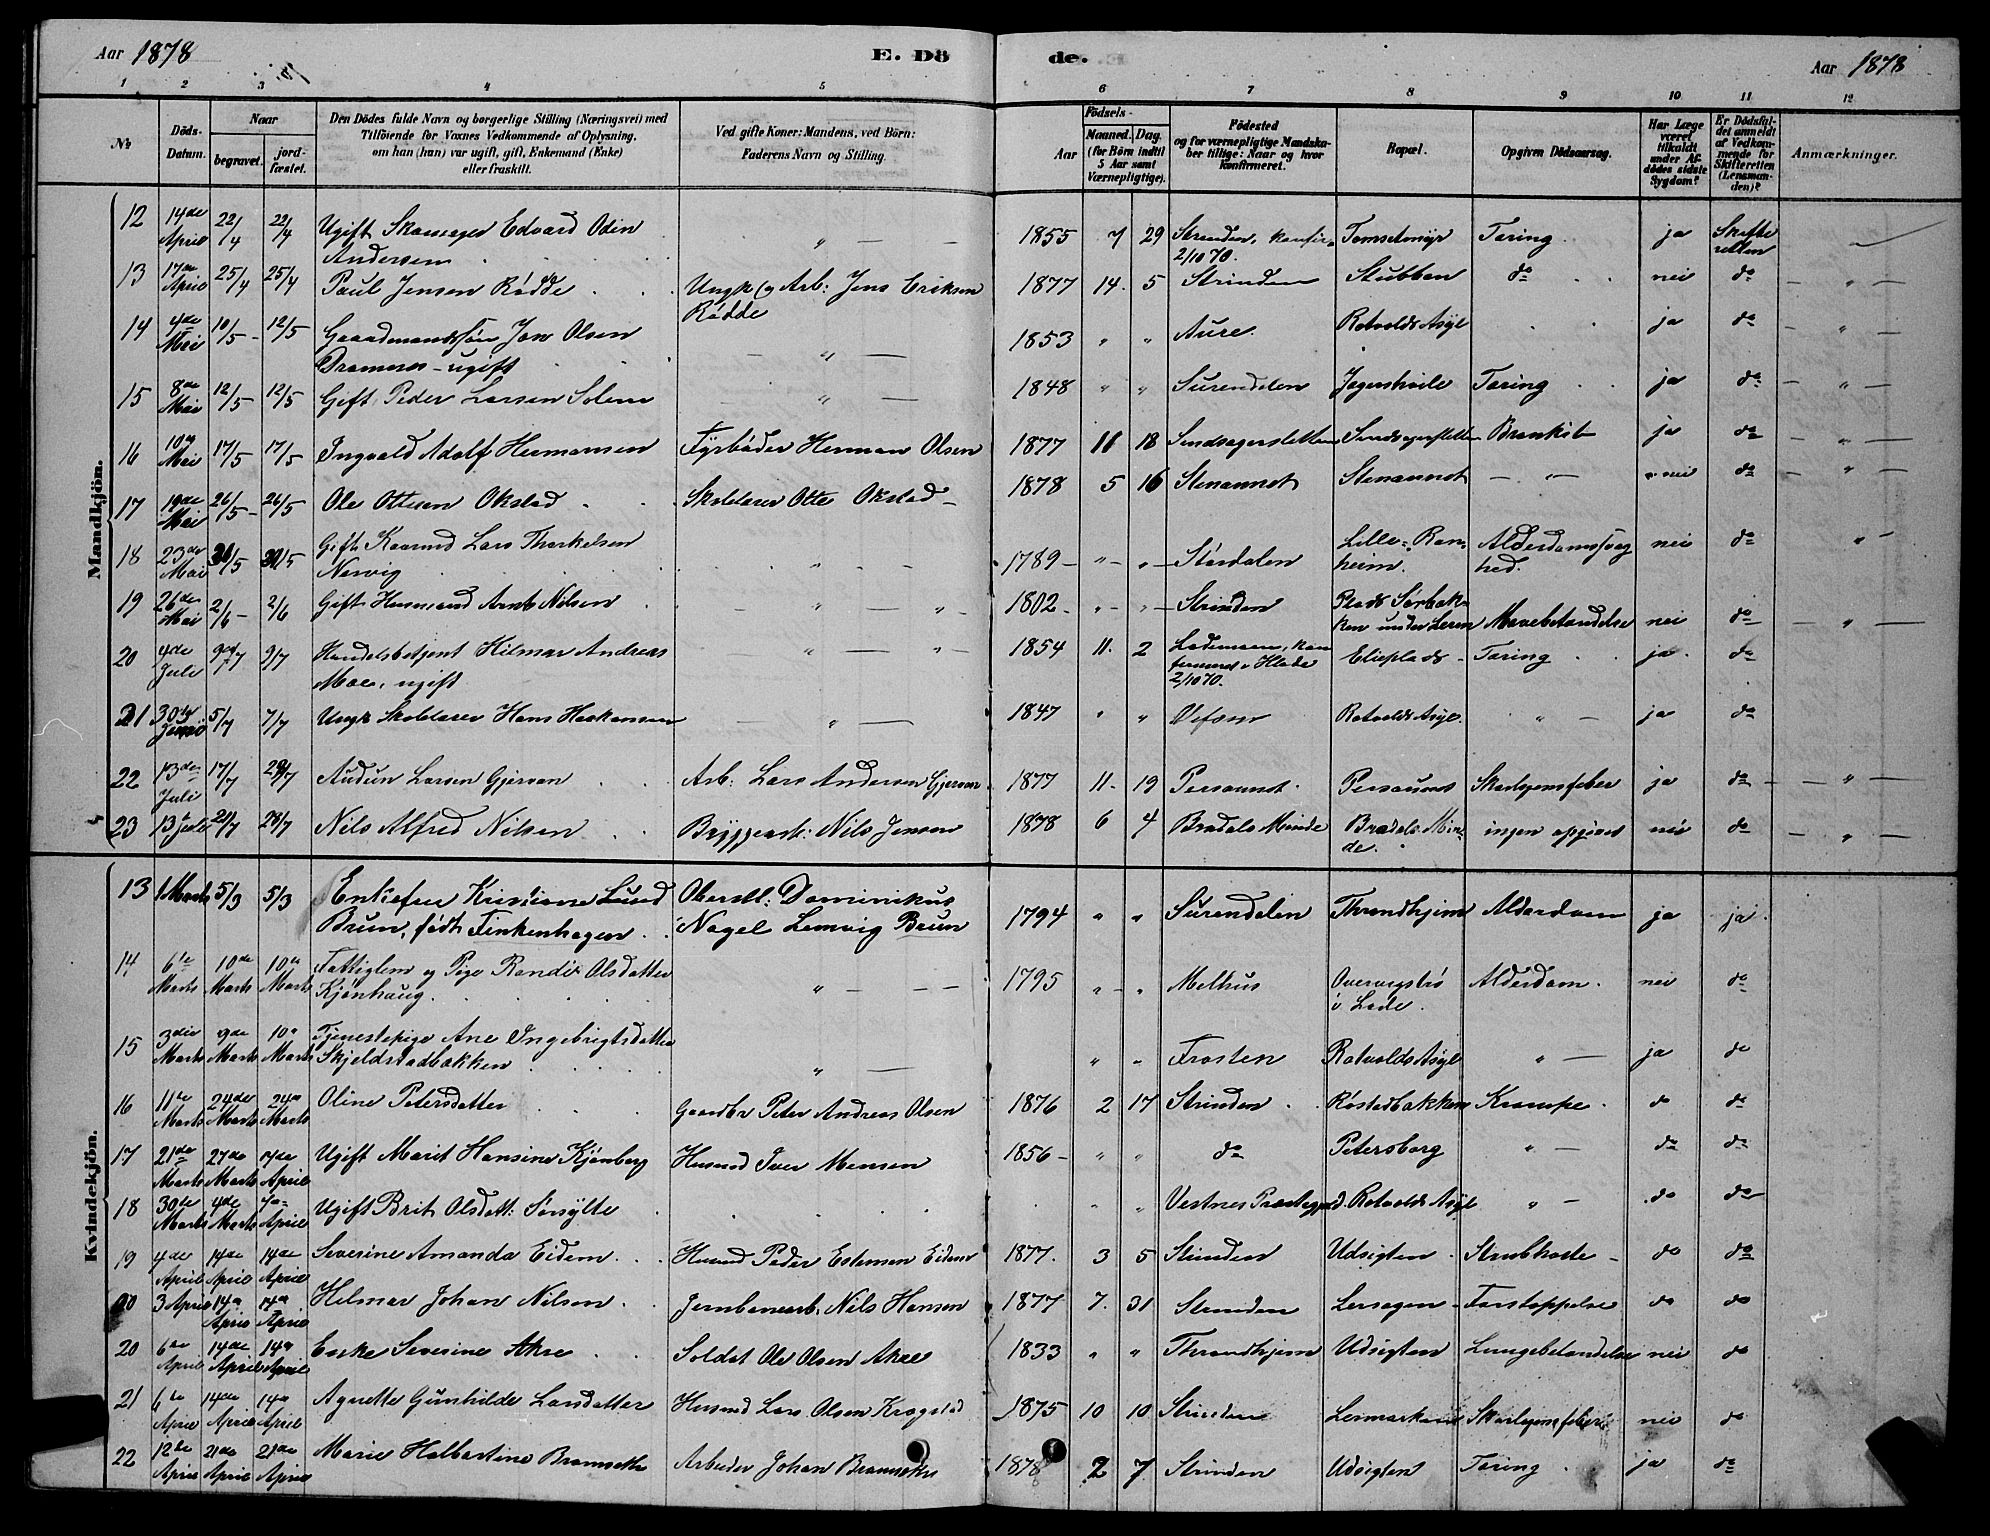 Aar 1878
E. Dö de.
Aar 1878
1 2 3 4 5 6 7 8 9 10 11 12
No
Döds-Datum.
Naar
begravet.
jord-fæstet.
Den Dödes fulde Navn og borgerlige Stilling (Næringsvei) med
Tilföiende for Voxnes Vedkommende af Oplysning,
om han (hun) var ugift, gift, Enkemand (Enke)
eller fraskilt.
Ved gifte Koner: Mandens, ved Börn:
Faderens Navn og Stilling.
Födsels-
Aar
Maaned. Dag.
(for Börn indtil
5 Aar samt
Værnepligtige).
Födested
og for værnepligtige Mandska-
ber tillige: Naar og hvor
konfirmeret.
Bopæl.
Opgiven Dödsaarsag.
Har Læge
været
tilkaldt
under Af-
dödes sidste
Sygdom?
Er Dödsfal-
det anmeldt
af Vedkom-
mende for
Skifteretten
(Lensman-
den)?
Anmærkninger.
Mandkjön.
12 14de April 22/4 22/4 Ugift Edvard Odin Andersen 1855 7 29 Strinden, konfir. 2/10 70. Tæring ja Skifteretten
13 17de April 25/4 25/4 Paul Jensen Rødde Ungk og Arb: Jens Eriksen Rødde 1877 14. 5 Strinden Stubban do nei do
14 4de Mai 10/5 12/5 Gaardmandssøn Jon Olsen ugift 1853 " " Aure Rotvolds Asyl ja do
15 8de Mai 12/5 12/5 Gift Peder Larsen Solem 1848 " " Surendalen Jegershvile Tæring ja do
16 10de Mai 17/5 17/5 Ingvald Adolf Hermansen Fyrbøder Herman Olsen 1877 11 18 Bronkit ja do
17 19de Mai 26/5 26/5 Ole Ottesen Okstad Skolelærer Otto Okstad 1878 5 16 Stenaunet Stenaunet nei do
18 23de Mai /5 /5 Gift Kaarmd Lars Thorkelsen 1789 Størdalen Lille-Ranheim. Alderdomssvaghed. nei do
19 26de Mai 2/6 2/6 Gift Husmand Arnt Nilsen 1802 Strinden Plads Sørbakken under Leren Mavebetændelse nei do
20 4de Juli 9/7 9/7 Handelsbetjent Hilmar Andreas Moe, ugift 1854 11. 2 Lademoen, konfirmeret i Hlade 2/10 70. Elieplads Tæring ja do
21 30te Juni 5/7 7/7 Ungk Skolelærer Hans Haakansen 1847 " " Vefsen Rotvolds Asyl ja do
22 13de Juli 17/7 28/7 Audun Larsen Gjervan Arb: Lars Andersen Gjervan 1877 11. 19 Persaunet Persaunet Skarlagensfeber ja do
23 13 Juli 21/7 28/7 Nils Alfred Nilsen Bryggearb: Nils Jensen 1878 6 4 Bradals Minde Bradals Minde. ingen opgivet nei do
Kvindekjön.
13 1 Marts 5/3 5/3 Enkefru Kristiane Lund Brun, født Finkenhagen Oberstl: Dominikus Nagel Lemvig Brun 1794 " " Surendalen Throndhjem Alderdom ja ja
14 6te Marts 10de Marts 10de Marts Fattiglem og Pige Randi Olsdatter Kjønhaug 1795 Melhus i Lade. Alderdom nei do
15 3die Marts 9de Marts 10de Marts Tjenestepige Ane Ingebrigtsdatter Skjeldstadbakken " " Frosten Rotvolds Asyl ja do
16 11te Marts 24de Marts 24de Marts Oline Petersdatter Gaardbr Peter Andreas Olsen 1876 2 17 Strinden Røstedbakken Krampe do do
17 21de Marts 27de Marts 14de April Ugift Marit Hansine Kjønberg Husmd Iver Monsen 1856 " " do Petersborg do do
18 30te Marts 4de Marts 7de April Ugift Brit Olsdatt: Sørsylte Vestnes Præstegjæld Rotvolds Asyl do do
19 4de April 14de April 14de April Severine Amanda Eidem Husmd Peder Estensen Eidem 1877 3 5 Strinden Udsigten Strubhoste do do
20 3 April 14de April 14de April Hilmar Johan Nilsen Jernbanearb. Nils Hansen 1877 7. 31 Strinden Lersagen Forstoppelse do do
20 6te April 14de April 14de April Enke Severine Akre Soldat Ole Olsen Akre 1833 " " Throndhjem Udsigten Lungebetændelse nei do
21 6te April 14de April 14de April Agnette Gunhilde Larsdatter Husmd Lars Olsen Krogstad 1875 10 10 Strinden Lermarken Skarlagensfeber nei do
22 12te April 21de April 21de April Marie Halbertine Bromseth Arbeider Johan Bromseth 1878 2 7 Strinden Udsigten Tæring ja do